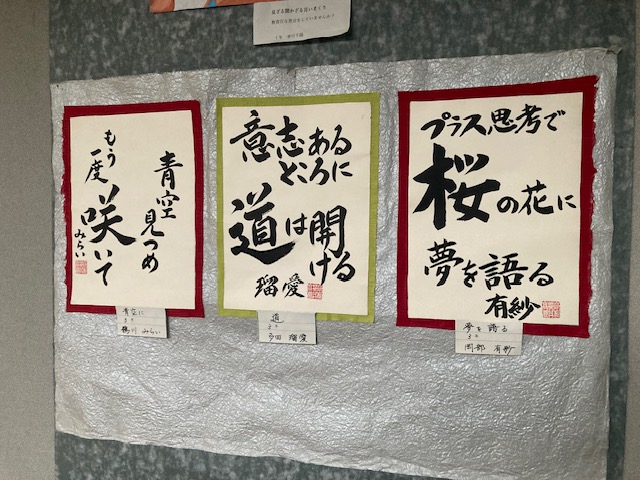 見ざる聞かざる言いまくり
青空
見つめ
もう
一度
咲いて
みらい
青空に
みらい
意志あるところに
道は開ける
瑠愛
道
瑠愛
プラス思考で
桜の花に
夢を語る
有紗
夢を語る
岡部 有紗